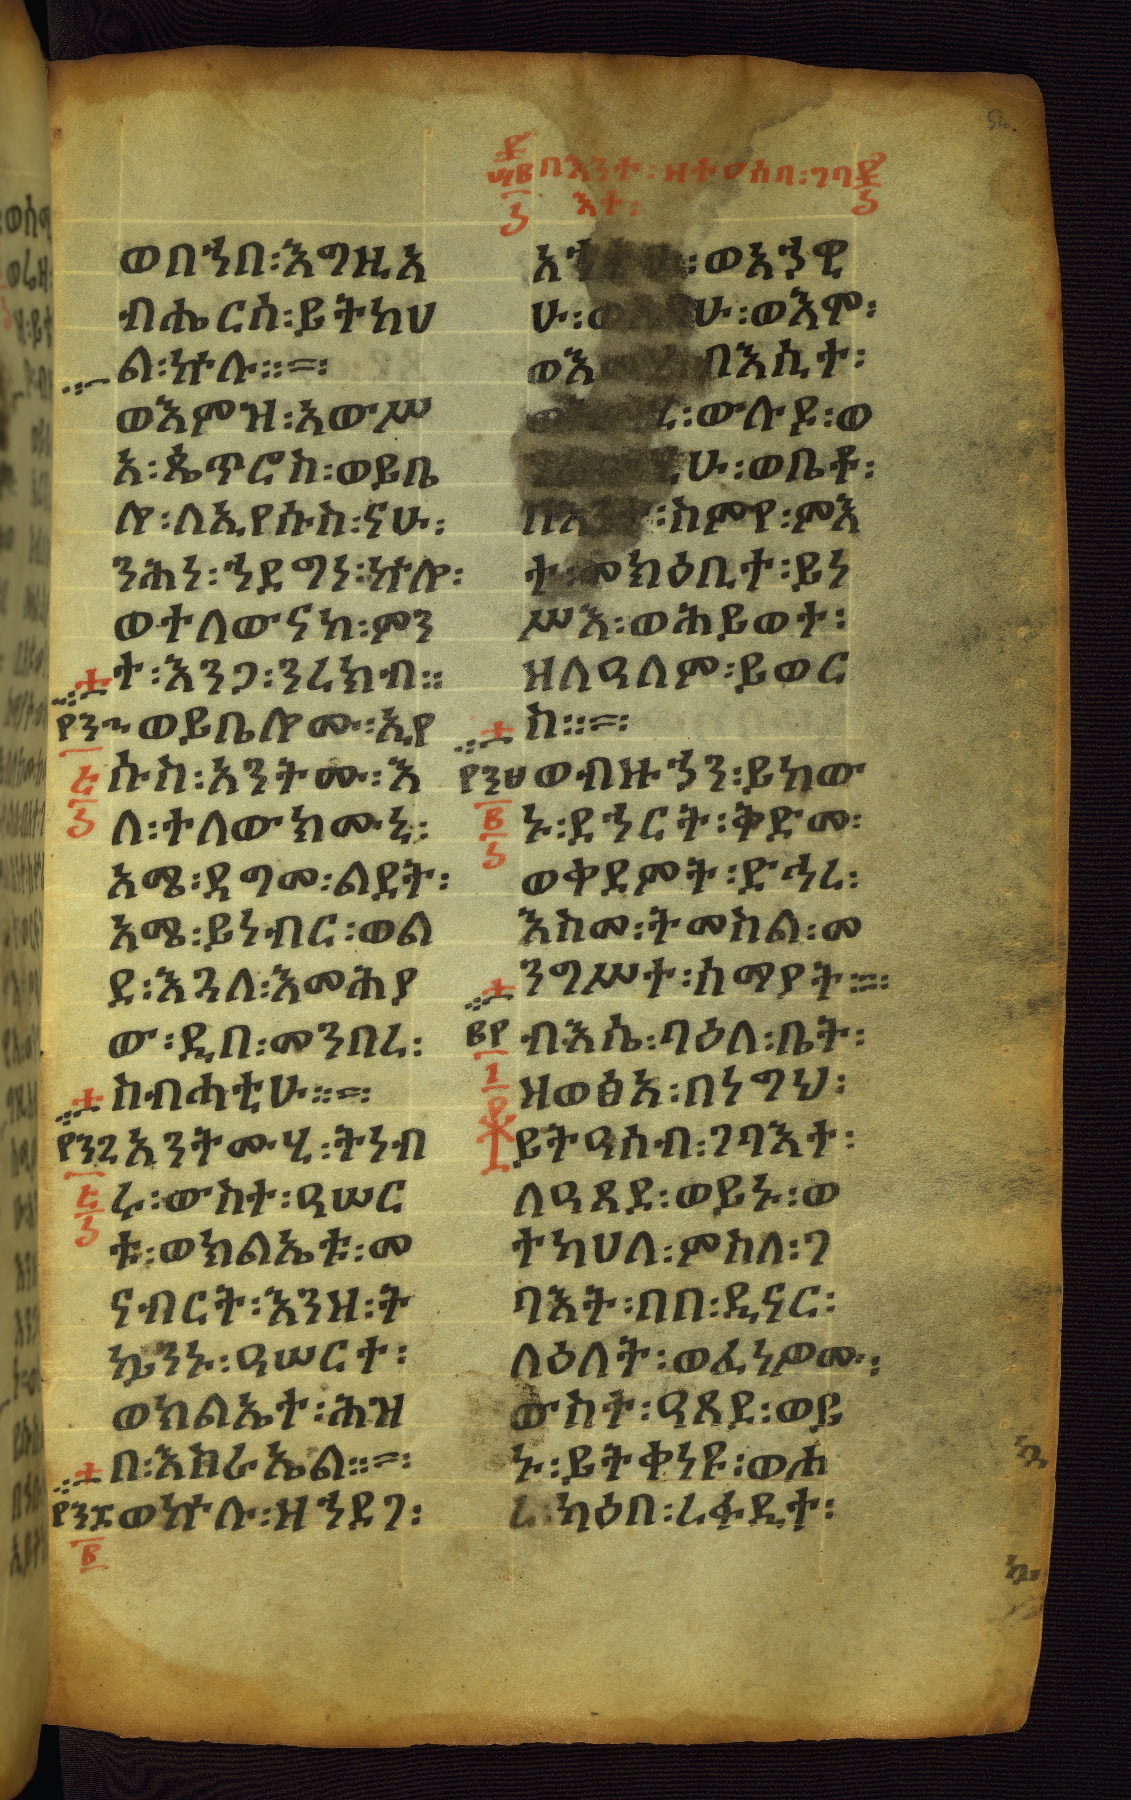 በእንተ፡ዘተዐሰበ፡ገባ
እተ፡
ወበኀበ፡እግዚአ
ብሔርሰ፡ይትከሀ
ል፡ኵሉ።
ወእምዝ፡አውሥ
አ፡ጴጥሮስ፡ወይቤ
ሎ፡ለኢየሱስ፡ናሁ፡
ንሕነ፡ኀደግነ፡ኵሎ፡
ወተለውናከ፡ምን
ተ፡እንጋ፡ንረክብ።
ወይቤሎሙ፡ኢየ
ሱስ፡አንትሙ፡እ
ለ፡ተለውክሙኒ፡
አሜ፡ዳግመ፡ልደት፡
አሜ፡ይነብር፡ወል
ደ፡እጓለ፡እመሕያ
ው፡ዲበ፡መንበረ፡
ስብሓቲሁ።
አንትሙሂ፡ትነብ
ሩ፡ውስተ፡ዓሠር
ቱ፡ወክልኤቱ፡መ
ናብርት፡እንዘ፡ት
ኴንኑ፡ዓሠርተ፡
ወክልኤተ፡ሕዝ
በ፡እስራኤል።
ወኵሉ፡ዘኀደገ፡
ወአኃዊ
ሁ፡ ሁ፡ወእሞ፡
በእሲተ፡
ውሉደ፡ወ
ወቤቶ፡
ስምየ፡ምእ
ተ፡መክዕቢተ፡ይነ
ሥእ፡ወሕይወተ፡
ዘለዓለም፡ይወር
ስ።
ወብዙኃን፡ይከው
ኑ፡ደኀርት፡ቅድመ፡
ወቀደምት፡ድኃረ፡
እስመ፡ትመስል፡መ
ንግሥተ፡ሰማያት።
ብእሴ፡ባዕለ፡ቤት፡
ዘወፅአ፡በነግህ፡
ይትዓሰብ፡ገባእተ፡
ለዓጸደ፡ወይኑ፡ወ
ተካሀለ፡ምስለ፡ገ
ባእት፡በበ፡ዲናር፡
ለዕለት፡ወፈነዎሙ፡
ውስተ፡ዓጸደ፡ወይ
ኑ፡ይትቀነዩ፡ወሖ
ረ፡ካዕበ፡ረፋዲተ፡